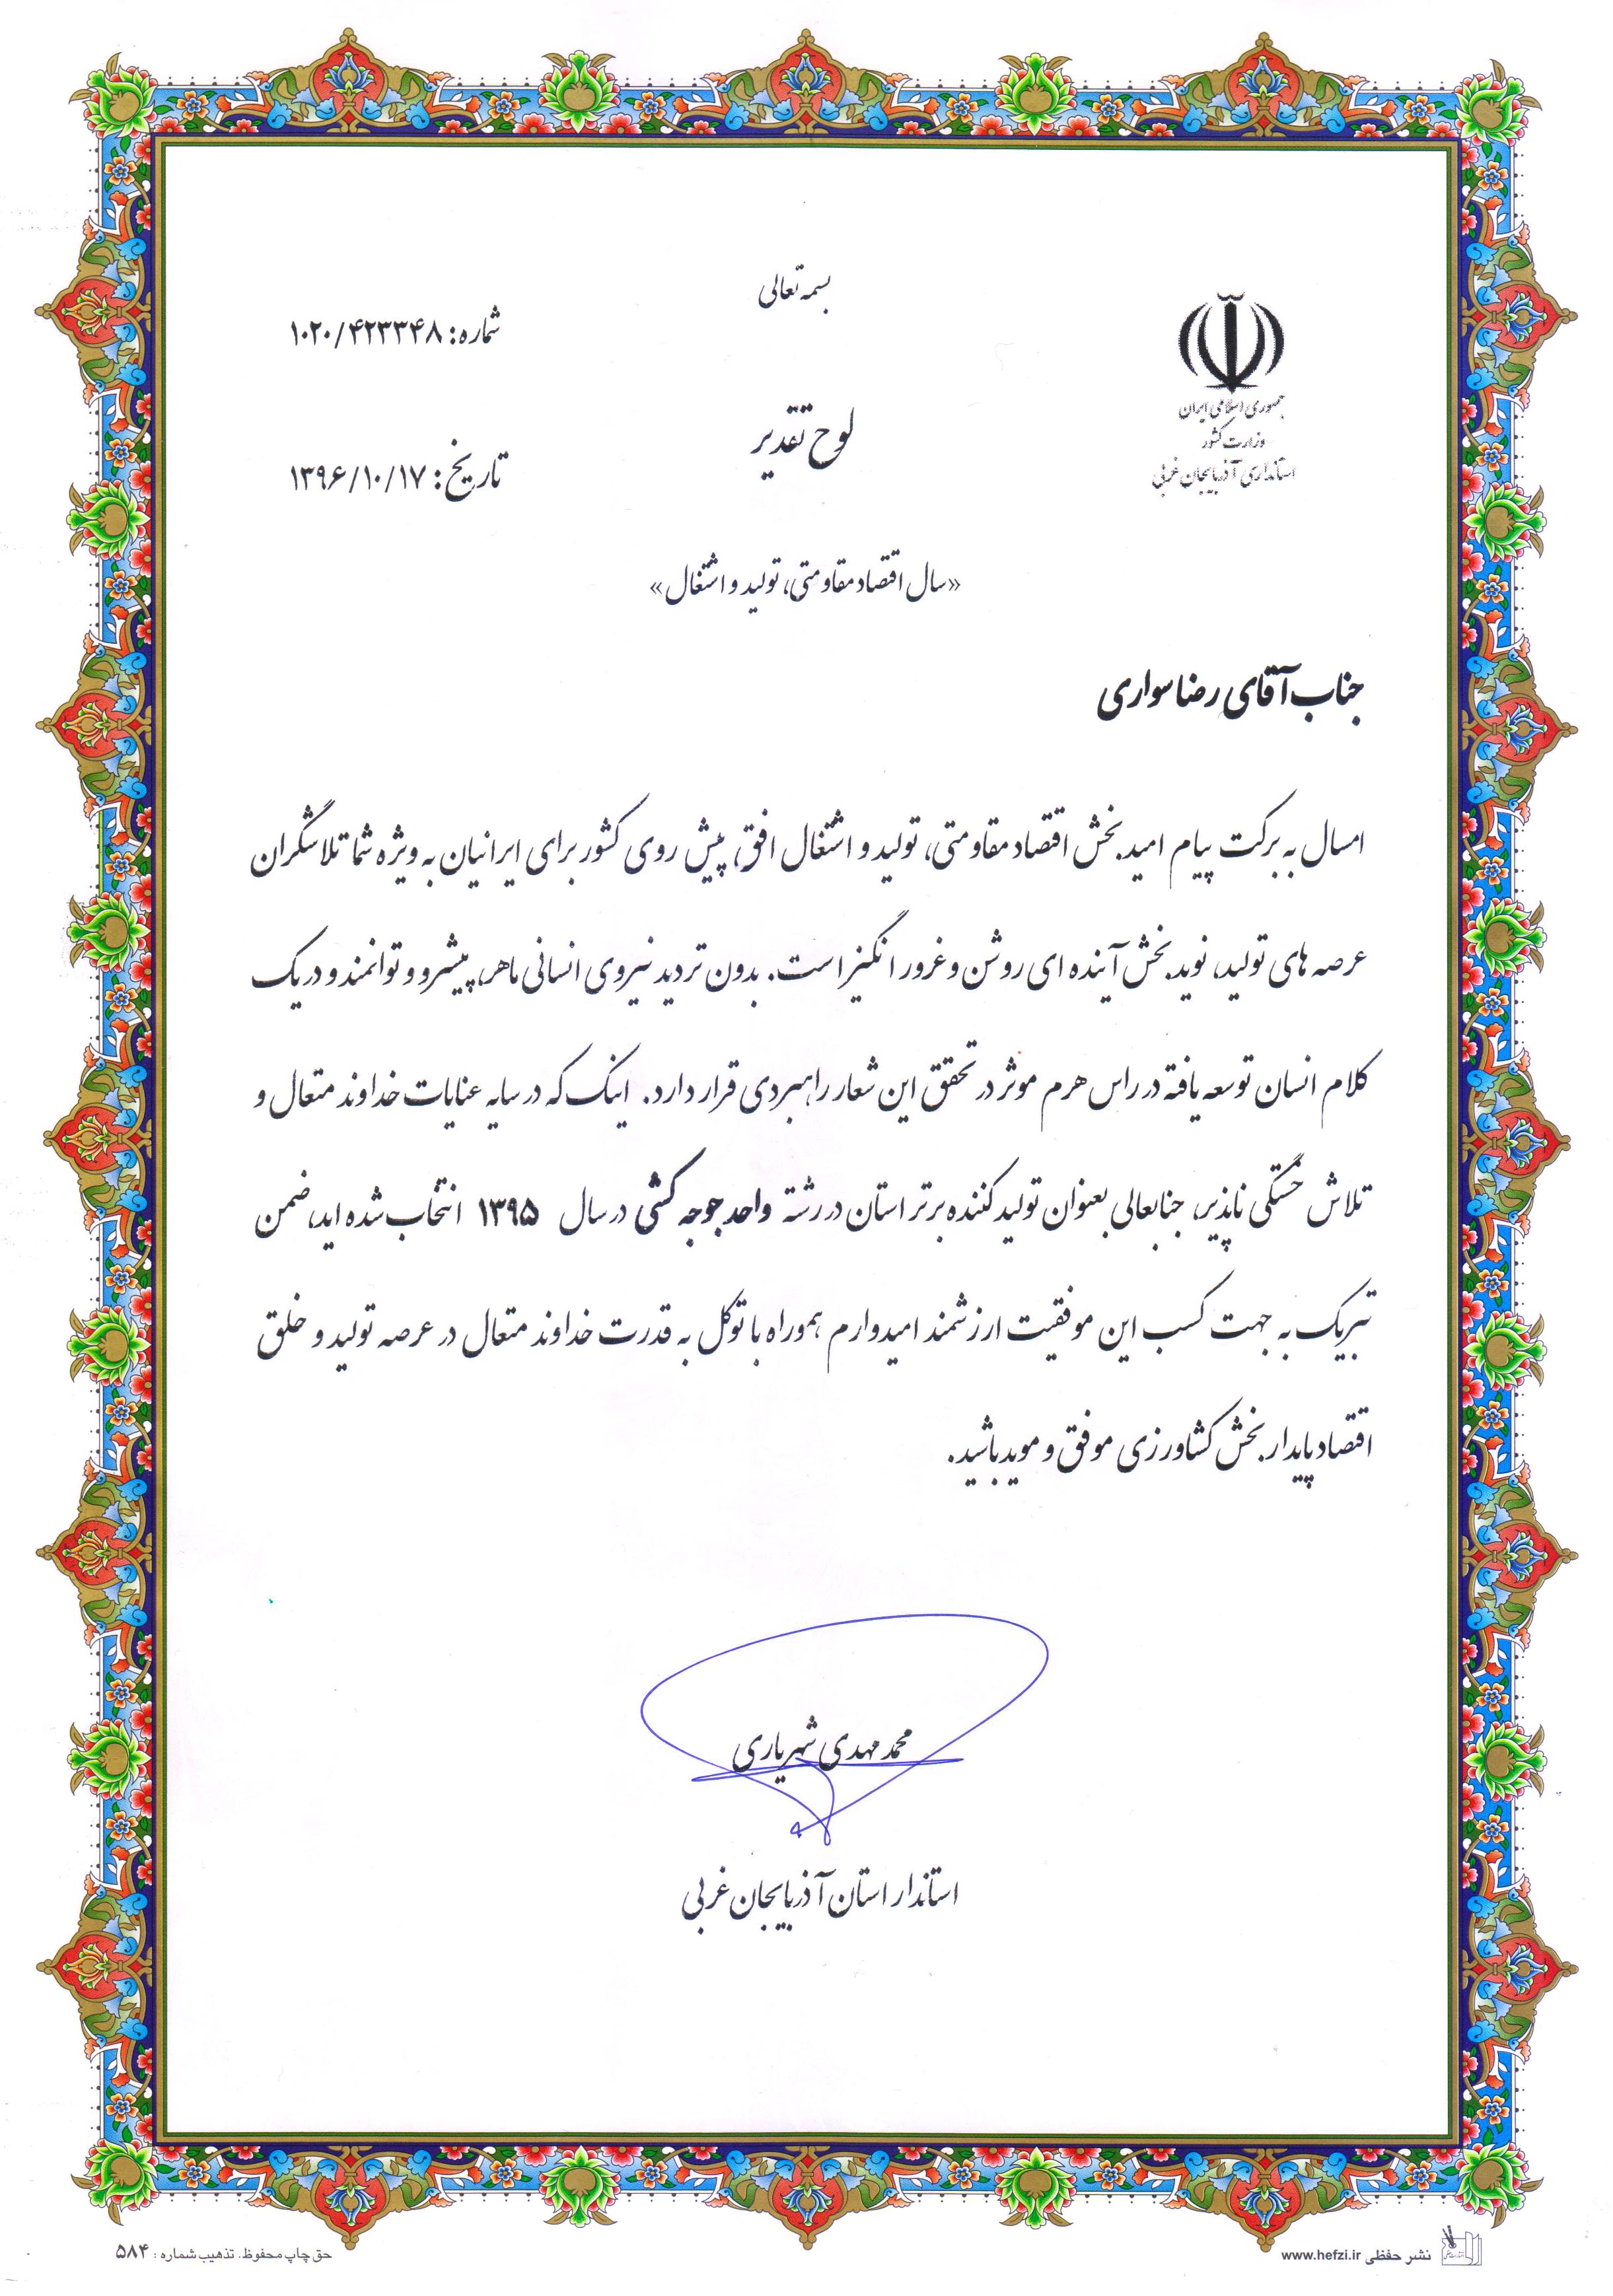 بسمه تعالی
جمهوری اسلامی ایران
وزارت کشور
استانداری آذربایجان غربی
شماره: ۱۰۲۰/۴۲۳۳۴۸
لوح تقدیر
تاریخ: ۱۳۹۶/۱۰/۱۷
«سال اقتصاد مقاومتی، تولید و اشتغال»
جناب آقای رضا سواری
امسال به برکت پیام امید بخش اقتصاد مقاومتی، تولید و اشتغال افق پیش روی کشور برای ایرانیان به ویژه شما تلاشگران
عرصه های تولید، نوید بخش آینده ای روشن و غرور انگیز است. بدون تردید نیروی انسانی ماهر، پیشرو و توانمند و در یک
کلام انسان توسعه یافته در راس هرم موثر در تحقق این شعار راهبردی قرار دارد. اینک که در سایه عنایات خداوند متعال و
تلاش خستگی ناپذیر، جنابعالی بعنوان تولید کننده برتر استان در رشته واحد جوجه کشی در سال ۱۳۹۵ انتخاب شده اید، ضمن
تبریک به جهت کسب این موفقیت ارزشمند امیدوارم هموراه با توکل به قدرت خداوند متعال در عرصه تولید و خلق
اقتصاد پایدار بخش کشاورزی موفق و موید باشید.
محمد مهدی شهریاری
استاندار استان آذربایجان غربی
نشر حفظی www.hefzi.ir
حق چاپ محفوظ. تذهیب شماره : ۵۸۴